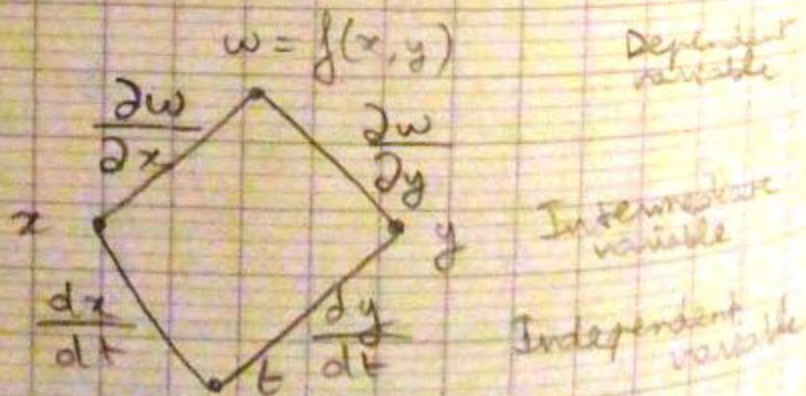 w = f(x, y)
Dependent
variable
∂w/∂x
∂w/∂y
x
y
Intermediate
variable
dx/dt
dy/dt
t
Independent
variable